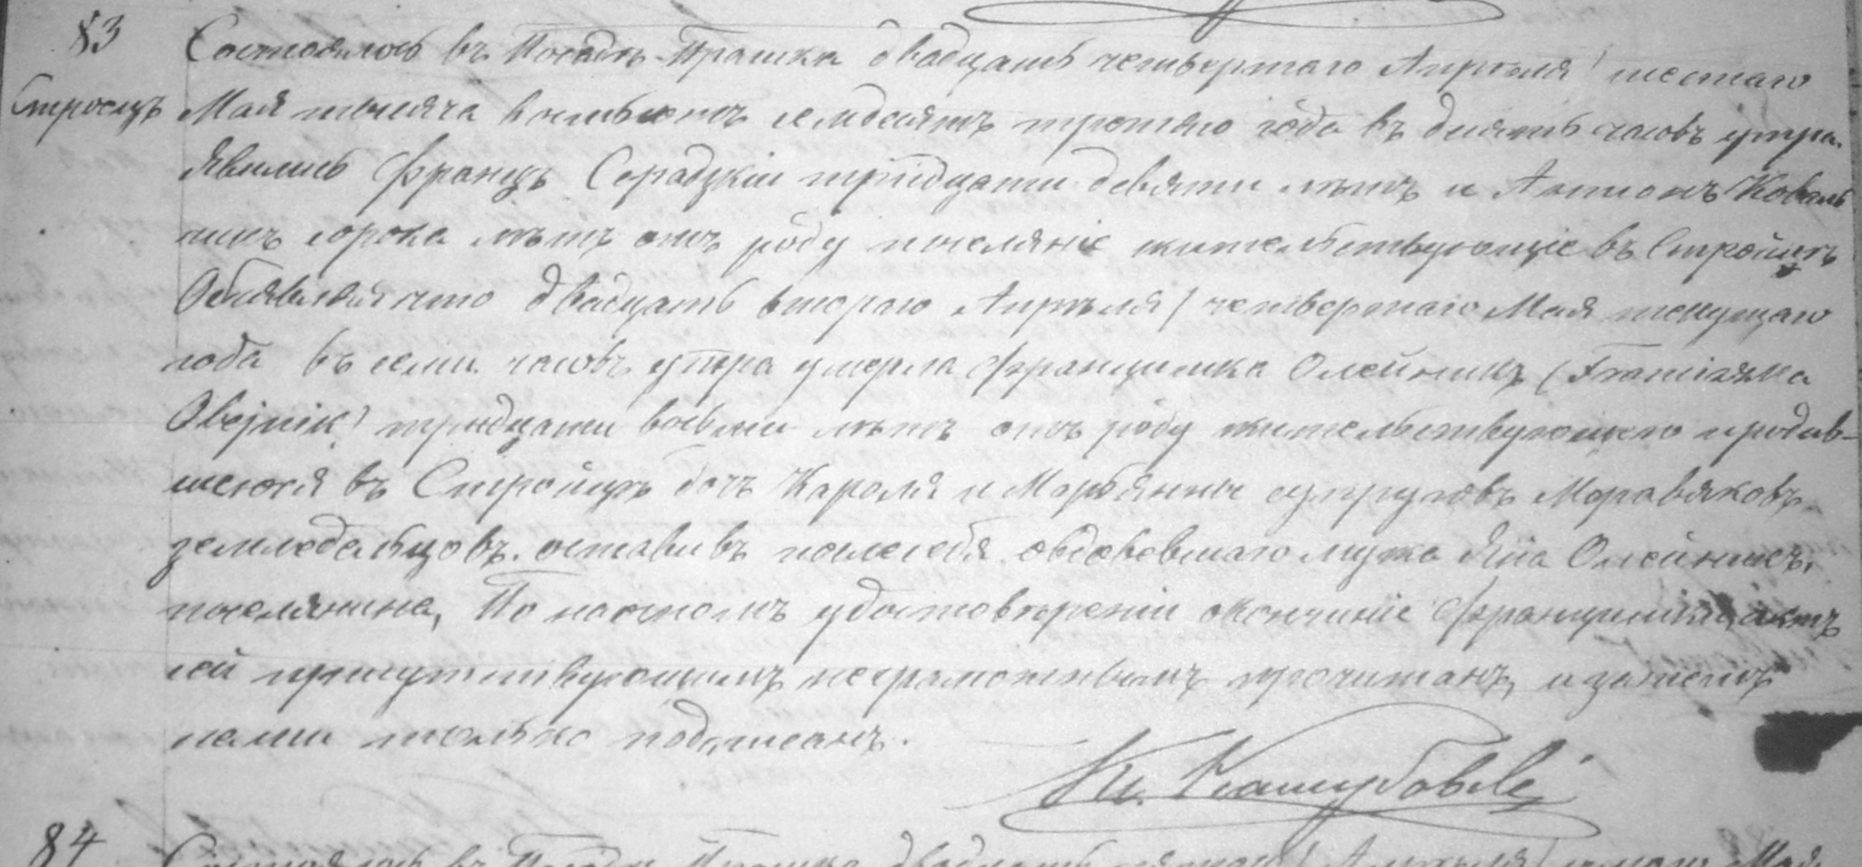 83
Стройцъ
Состоялось въ Посадѣ Прашка двадцать четвертаго Апрѣля / шестаго
Мая тысяча восемьсотъ семдесятъ третяго года въ десять часовъ утра.
Явились Францъ Серадзкій тридцати девяти лѣтъ и Антонъ Коваль
чикъ сорока лѣтъ отъ роду поселяніе жительствующіе въ Стройцѣ
Объявляя что двадцать втораго Апрѣля / четвертаго Мая текущаго
года въ семи часовъ утра умерла Францишка Олейникъ (Franciszka
Olejnik) тридцати восьми лѣтъ отъ роду жительствующею и родив-
шеюся въ Стройцѣ дочь Кароля и Марьянны супруговъ Моравяковъ
земледельцовъ. оставивъ после себя овдовевшаго мужа Яна Олейникъ,
поселянина, По настномъ удостовѣреніи окончиніе Францишки, актъ
сей присутствующимъ неграмотнымъ прочитанъ, и затемъ
нами только подписанъ.
84
Состоялось въ Посадѣ Прашка двадцать пятаго / Апрѣля / Мая